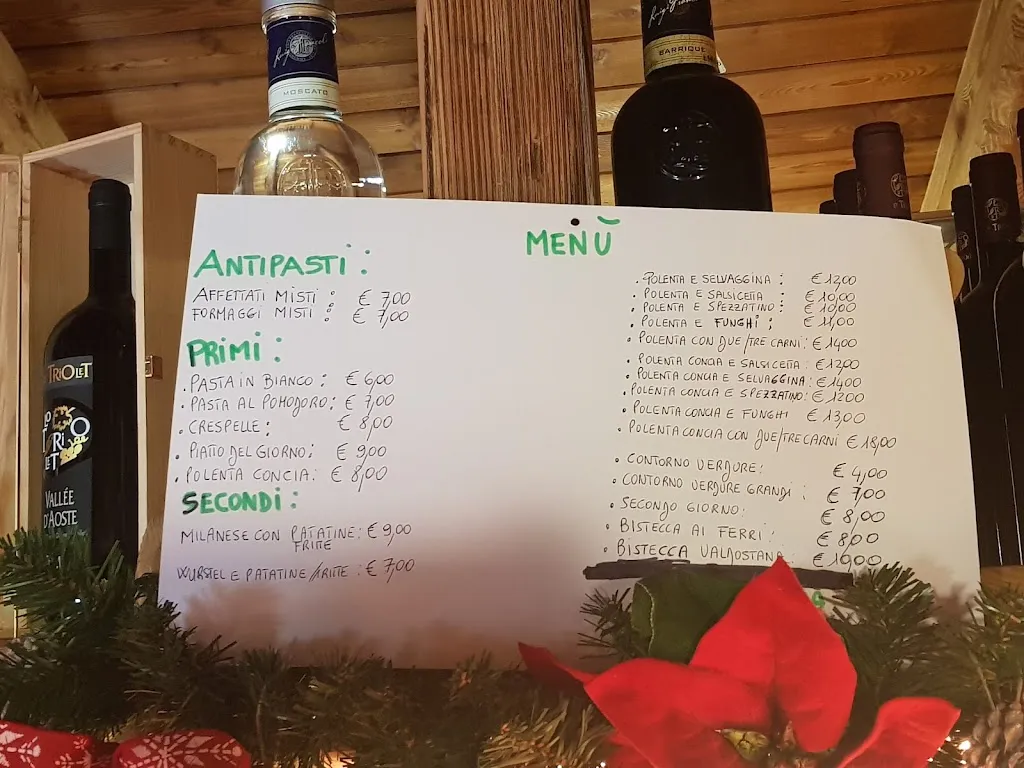 MOSCATO
BARRIQUE
TRIOLET
VALLÉE
D'AOSTE
MENŨ
ANTIPASTI:
AFFETTATI MISTI: € 7,00
FORMAGGI MISTI: € 7,00
PRIMI:
. PASTA IN BIANCO: € 6,00
. PASTA AL POMODORO: € 7,00
. CRESPELLE: € 8,00
. PIATTO DEL GIORNO: € 9,00
. POLENTA CONCIA: € 8,00
SECONDI:
MILANESE CON PATATINE: € 9,00
FRITTE
WURSTEL E PATATINE FRITTE: € 7,00
. POLENTA E SELVAGGINA: € 12,00
. POLENTA E SALSICETTA: € 10,00
. POLENTA E SPEZZATINO: € 10,00
. POLENTA E FUNGHI: € 11,00
. POLENTA CON DUE/TRE CARNI: € 14,00
. POLENTA CONCIA E SALSICETTA: € 12,00
. POLENTA CONCIA E SELVAGGINA: € 14,00
. POLENTA CONCIA E SPEZZATINO: € 12,00
. POLENTA CONCIA E FUNGHI € 13,00
. POLENTA CONCIA CON DUE/TRE CARNI € 18,00
. CONTORNO VERDURE: € 4,00
. CONTORNO VERDURE GRANDI: € 7,00
. SECONDO GIORNO: € 8,00
. BISTECCA AI FERRI: € 8,00
. BISTECCA VALDOSTANA: € 10,00